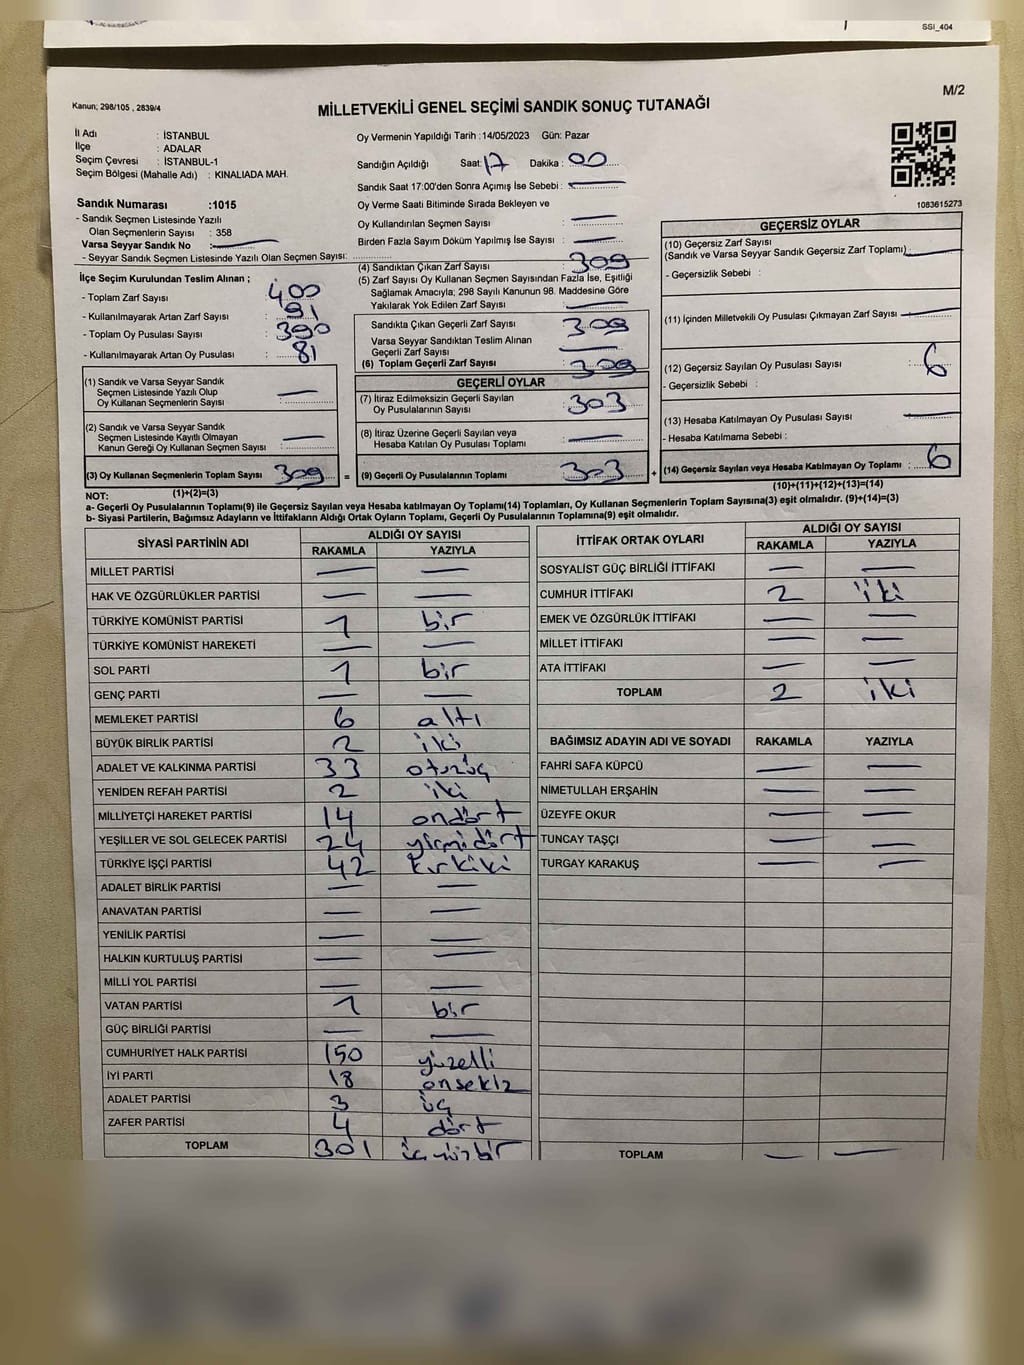 SSI_404
M/2
Kanun; 298/105 , 2839/4
MİLLETVEKİLİ GENEL SEÇİMİ SANDIK SONUÇ TUTANAĞI
İl Adı : İSTANBUL
İlçe : ADALAR
Seçim Çevresi : İSTANBUL-1
Seçim Bölgesi (Mahalle Adı) : KINALIADA MAH.
Oy Vermenin Yapıldığı Tarih :14/05/2023 Gün: Pazar
Sandığın Açıldığı Saat: 17 Dakika : 00
Sandık Saat 17:00'den Sonra Açımış İse Sebebi : —
Oy Verme Saati Bitiminde Sırada Bekleyen ve
Oy Kullandırılan Seçmen Sayısı : —
Birden Fazla Sayım Döküm Yapılmış İse Sayısı : —
1083615273
Sandık Numarası :1015
- Sandık Seçmen Listesinde Yazılı
Olan Seçmenlerin Sayısı : 358
Varsa Seyyar Sandık No : —
- Seyyar Sandık Seçmen Listesinde Yazılı Olan Seçmen Sayısı:
İlçe Seçim Kurulundan Teslim Alınan ;
- Toplam Zarf Sayısı : 400
- Kullanılmayarak Artan Zarf Sayısı : 91
- Toplam Oy Pusulası Sayısı : 390
- Kullanılmayarak Artan Oy Pusulası : 81
(1) Sandık ve Varsa Seyyar Sandık
Seçmen Listesinde Yazılı Olup
Oy Kullanan Seçmenlerin Sayısı : —
(2) Sandık ve Varsa Seyyar Sandık
Seçmen Listesinde Kayıtlı Olmayan
Kanun Gereği Oy Kullanan Seçmen Sayısı : —
(3) Oy Kullanan Seçmenlerin Toplam Sayısı : 309 =
(1)+(2)=(3)
(4) Sandıktan Çıkan Zarf Sayısı : 309
(5) Zarf Sayısı Oy Kullanan Seçmen Sayısından Fazla İse, Eşitliği
Sağlamak Amacıyla; 298 Sayılı Kanunun 98. Maddesine Göre
Yakılarak Yok Edilen Zarf Sayısı : —
Sandıkta Çıkan Geçerli Zarf Sayısı : 309
Varsa Seyyar Sandıktan Teslim Alınan
Geçerli Zarf Sayısı : —
(6) Toplam Geçerli Zarf Sayısı : 309
GEÇERLİ OYLAR
(7) İtiraz Edilmeksizin Geçerli Sayılan
Oy Pusulalarının Sayısı : 303
(8) İtiraz Üzerine Geçerli Sayılan veya
Hesaba Katılan Oy Pusulası Toplamı : —
(9) Geçerli Oy Pusulalarının Toplamı : 303 +
GEÇERSİZ OYLAR
(10) Geçersiz Zarf Sayısı
(Sandık ve Varsa Seyyar Sandık Geçersiz Zarf Toplamı) : —
- Geçersizlik Sebebi :
(11) İçinden Milletvekili Oy Pusulası Çıkmayan Zarf Sayısı : —
(12) Geçersiz Sayılan Oy Pusulası Sayısı : 6
- Geçersizlik Sebebi :
(13) Hesaba Katılmayan Oy Pusulası Sayısı : —
- Hesaba Katılmama Sebebi :
(14) Geçersiz Sayılan veya Hesaba Katılmayan Oy Toplamı : 6
(10)+(11)+(12)+(13)=(14)
NOT:
a- Geçerli Oy Pusulalarının Toplamı(9) ile Geçersiz Sayılan veya Hesaba katılmayan Oy Toplamı(14) Toplamları, Oy Kullanan Seçmenlerin Toplam Sayısına(3) eşit olmalıdır. (9)+(14)=(3)
b- Siyasi Partilerin, Bağımsız Adayların ve İttifakların Aldığı Ortak Oyların Toplamı, Geçerli Oy Pusulalarının Toplamına(9) eşit olmalıdır.
SİYASİ PARTİNİN ADI ALDIĞI OY SAYISI
RAKAMLA YAZIYLA
MİLLET PARTİSİ — —
HAK VE ÖZGÜRLÜKLER PARTİSİ — —
TÜRKİYE KOMÜNİST PARTİSİ 1 bir
TÜRKİYE KOMÜNİST HAREKETİ — —
SOL PARTİ 1 bir
GENÇ PARTİ — —
MEMLEKET PARTİSİ 6 altı
BÜYÜK BİRLİK PARTİSİ 2 iki
ADALET VE KALKINMA PARTİSİ 33 otuzüç
YENİDEN REFAH PARTİSİ 2 iki
MİLLİYETÇİ HAREKET PARTİSİ 14 ondört
YEŞİLLER VE SOL GELECEK PARTİSİ 24 yirmidört
TÜRKİYE İŞÇİ PARTİSİ 42 kırkiki
ADALET BİRLİK PARTİSİ — —
ANAVATAN PARTİSİ — —
YENİLİK PARTİSİ — —
HALKIN KURTULUŞ PARTİSİ — —
MİLLİ YOL PARTİSİ — —
VATAN PARTİSİ 1 bir
GÜÇ BİRLİĞİ PARTİSİ — —
CUMHURİYET HALK PARTİSİ 150 yüzelli
İYİ PARTİ 18 onsekiz
ADALET PARTİSİ 3 üç
ZAFER PARTİSİ 4 dört
TOPLAM 301 üçyüzbir
İTTİFAK ORTAK OYLARI ALDIĞI OY SAYISI
RAKAMLA YAZIYLA
SOSYALİST GÜÇ BİRLİĞİ İTTİFAKI — —
CUMHUR İTTİFAKI 2 iki
EMEK VE ÖZGÜRLÜK İTTİFAKI — —
MİLLET İTTİFAKI — —
ATA İTTİFAKI — —
TOPLAM 2 iki
BAĞIMSIZ ADAYIN ADI VE SOYADI RAKAMLA YAZIYLA
FAHRİ SAFA KÜPCÜ — —
NİMETULLAH ERŞAHİN — —
ÜZEYFE OKUR — —
TUNCAY TAŞÇI — —
TURGAY KARAKUŞ — —
TOPLAM — —